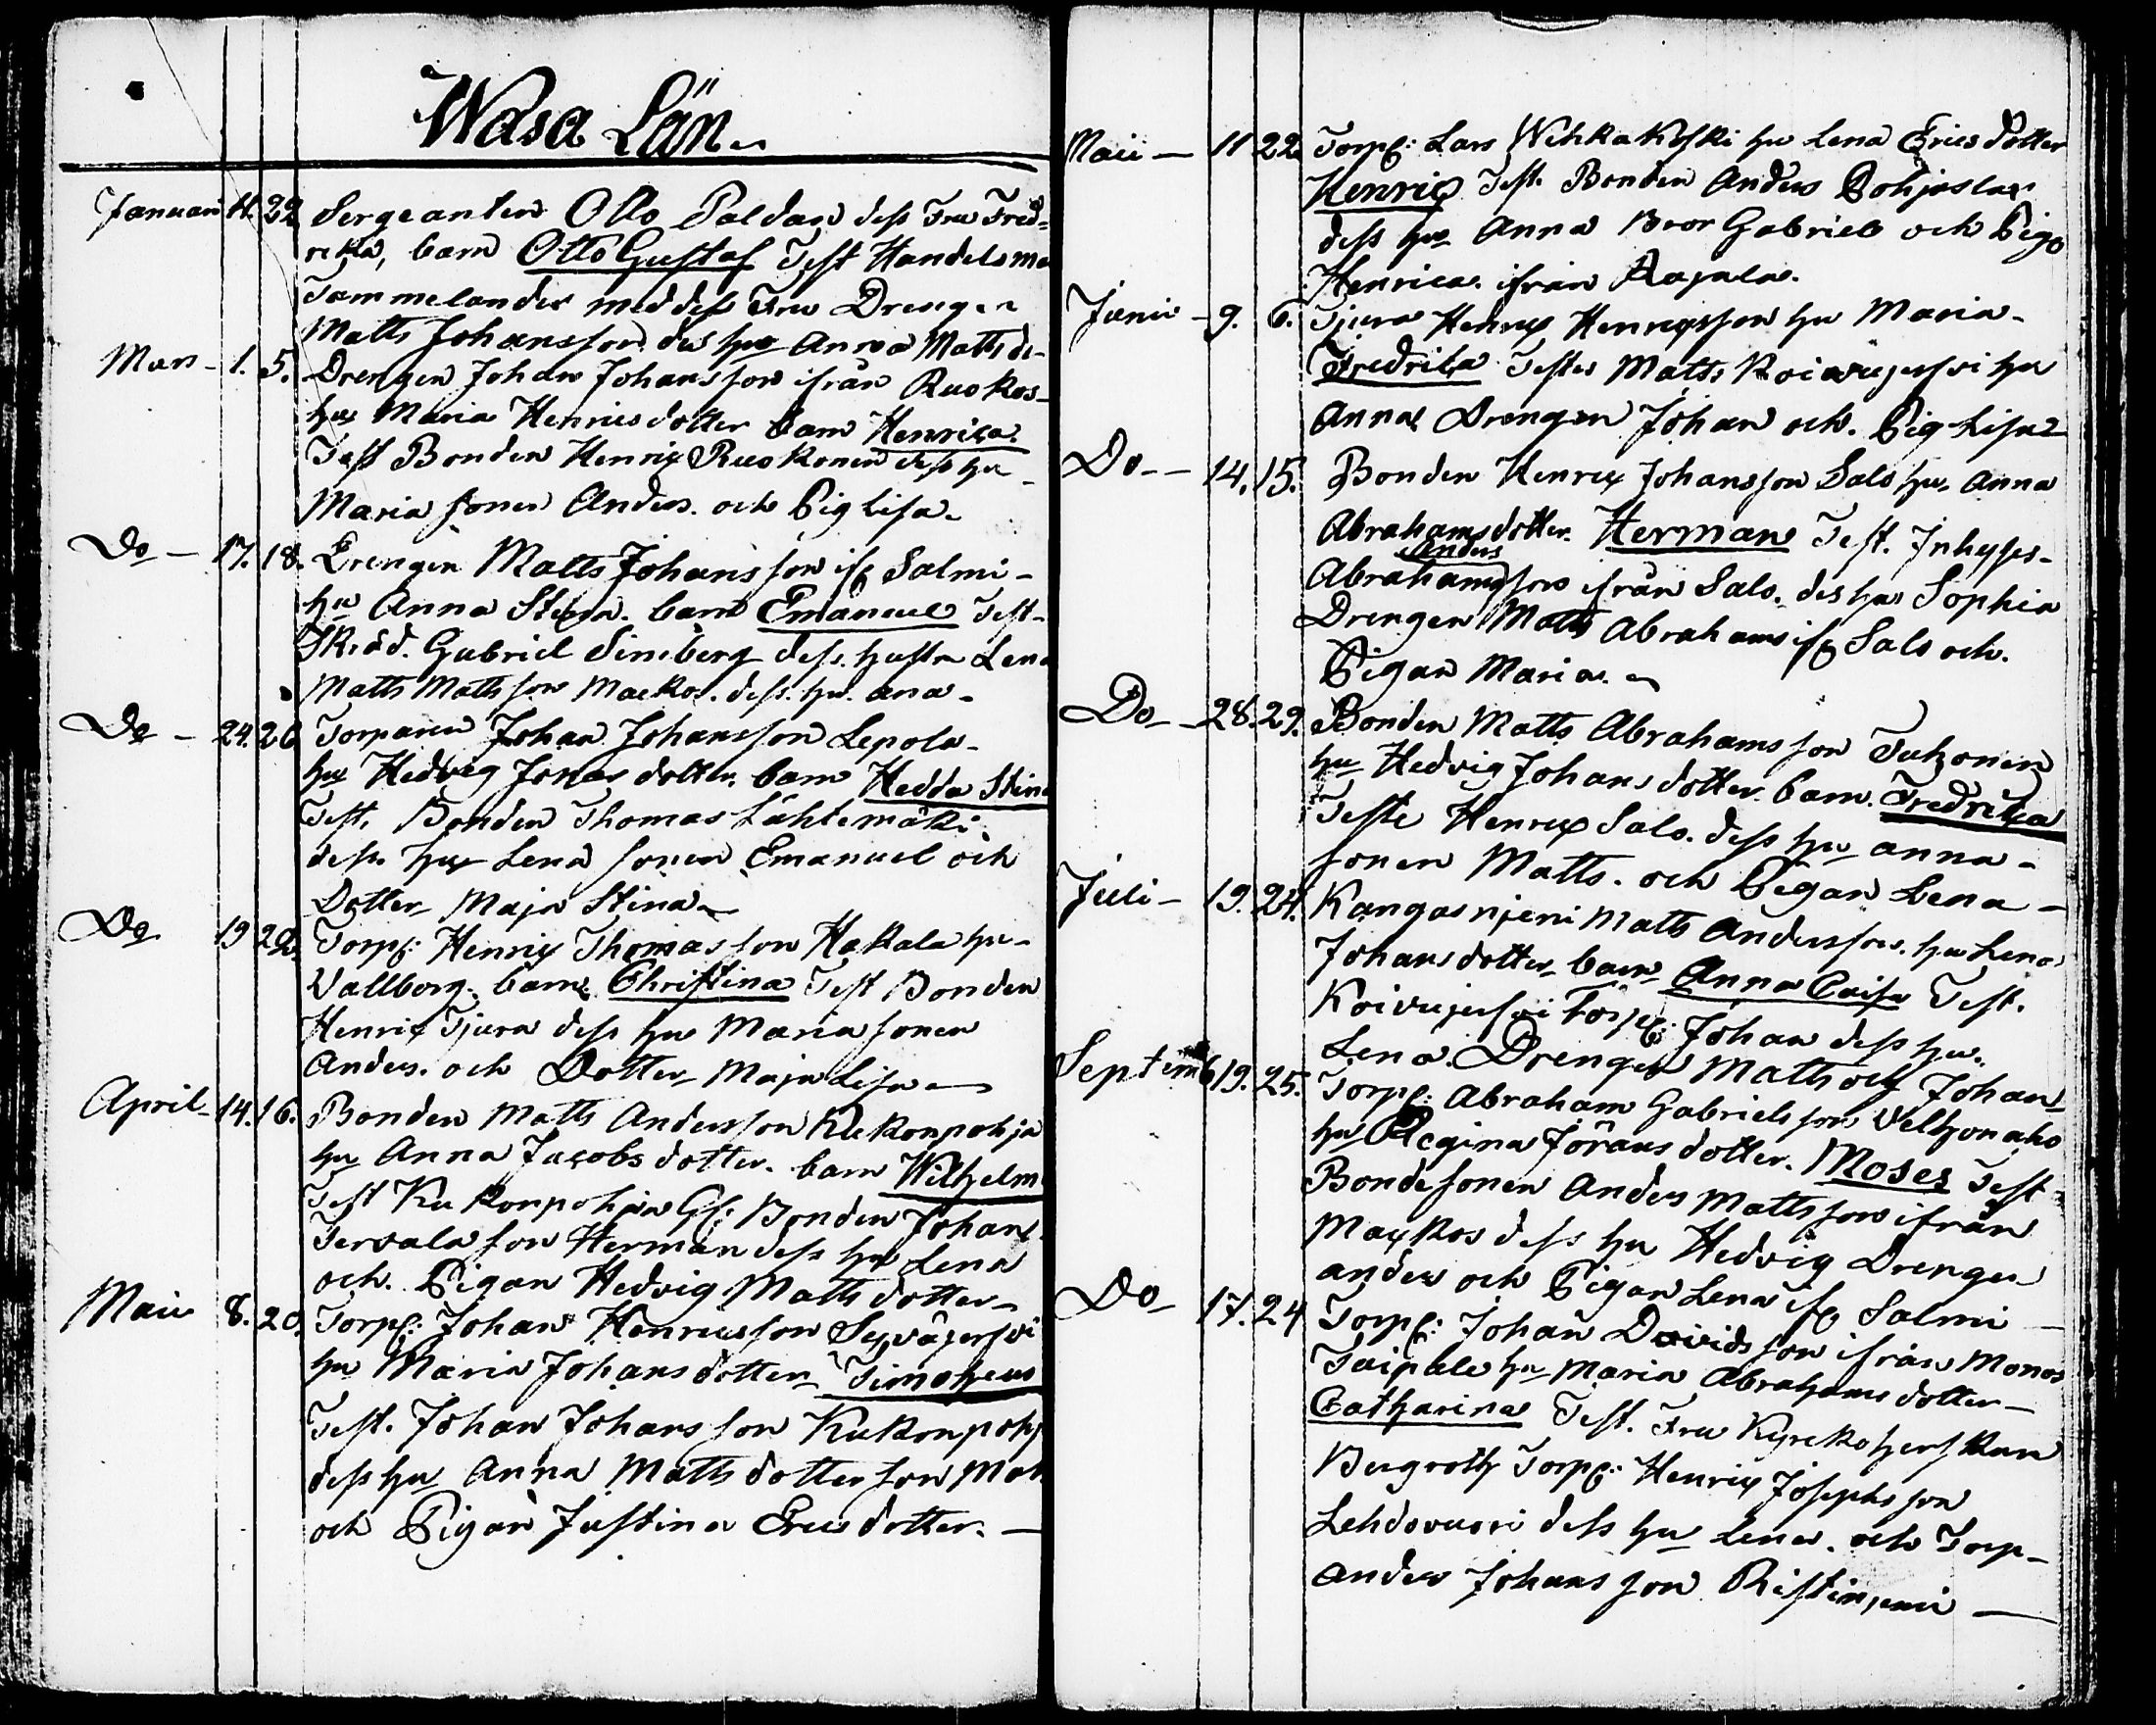 Wasa Län
Januari 11. 22 Sergeanten Otto Paldan dess Fru Fred=
rika, barn Otto Gustaf Test Handelsma
Tammelander med dess Fru Drengen
Matts Johansson des hu Anna Matts do
Mars - 1. 5. Drengen Johan Johansson ifrån Ruokos-
hu Maria Henricsdotter barn Henrica.
Test Bonden Henrix Ruokonen dess hu
Maria sonen Anders. och Pig Lisa.
Do - 17. 18. Drengen Matts Johansson if Salmi-
hu Anna Stina. barn Emanuel Test-
Skrädd. Gabriel Simberg dess hustru Lena
Matts Mattsson Maekos. dess hu. ana-
Do - 24. 26 Torparen Johan Johansson Lepola-
hu Hedvig Jonasdotter. barn Hedda Stina
Test. Bonden Thomas Lähtemäki
dess. hu Lena sonen Emanuel och
Dotter Maja Stina
Do 19 22. Torp: Henrix Thomasson Hakala hu-
Vallborg. barn Christina Test Bonden
Henrix Tjura dess hu Maria sonen
Anders. och Dotter Maja Lisa
April - 14. 16. Bonden Matts Andersson Kukonpohja
hu Anna Jacobsdotter. barn Wilhelm
Test Kukonpohja Gl: Bonden Johan
Tervala son Herman dess hu Lena
och. Pigan Hedvig Matts dotter
Maii 8. 20. Torp: Johan Henricsson Syväjerfvi
hu Maria Johansdotter Timotheus
Test. Johan Johansson Kukonpohj
dess hu Anna Mattsdotter son Mat
och Pigan Justina Ericsdotter. -
Maii - 11 22. Torp: Lars Wehkakoski hu Lena Ericsdotter
Henric Test. Bonden Anders Pohjaslax
dess hu Anna Bror Gabriel och Piga
Henrica. ifrån Rajala.
Junii - 9. 6. Tjura Henrix Henrixsson hu Maria-
Fredrika Testes Matts Koivujerfvi hu
Anna Drengen Johan och. Pig Lisa
Do - 14. 15. Bonden Henrix Johansson Salo hu. Anna
Abrahamsdotter. Herman Test. Inhyses-
Anders
Abrahamsson ifrån Salo. des hu Sophia
Drengen Matts Abrahams if Salo och.
Pigan Maria.
Do - 28. 29. Bonden Matts Abrahamsson Tuhonen
hu Hedvig Johansdotter. barn. Fredrika
Teste Henrix Salo. dess hu anna-
sonen Matts. och Pigan Lena-
Juli - 19. 24. Kangasnjemi Matts Andersson. hu Lena
Johansdotter barn Anna Caisa Test.
Koivujerfvi Torp: Johan dess hu.
Lena. Drengen Matts och Johan
Septemb 19. 25. Torp: Abraham Gabrielsson Velhonaho
hu Regina Jöransdotter. Moses Test
Bondesonen Anders Mattsson ifrån
Maykos dess hu Hedvig Drengen
ander och Pigan Lena if Salmi
Do 17. 24 Torp: Johan Davidsson ifrån Monos
Taipale hu Maria Abrahamsdotter-
Catharina Test. Fru Kyrckoherskan
Bergroth Torp: Henrix Josephsson
Lehdovuori dess hu Lena. och Torp-
Ander Johansson Ristinjemi -